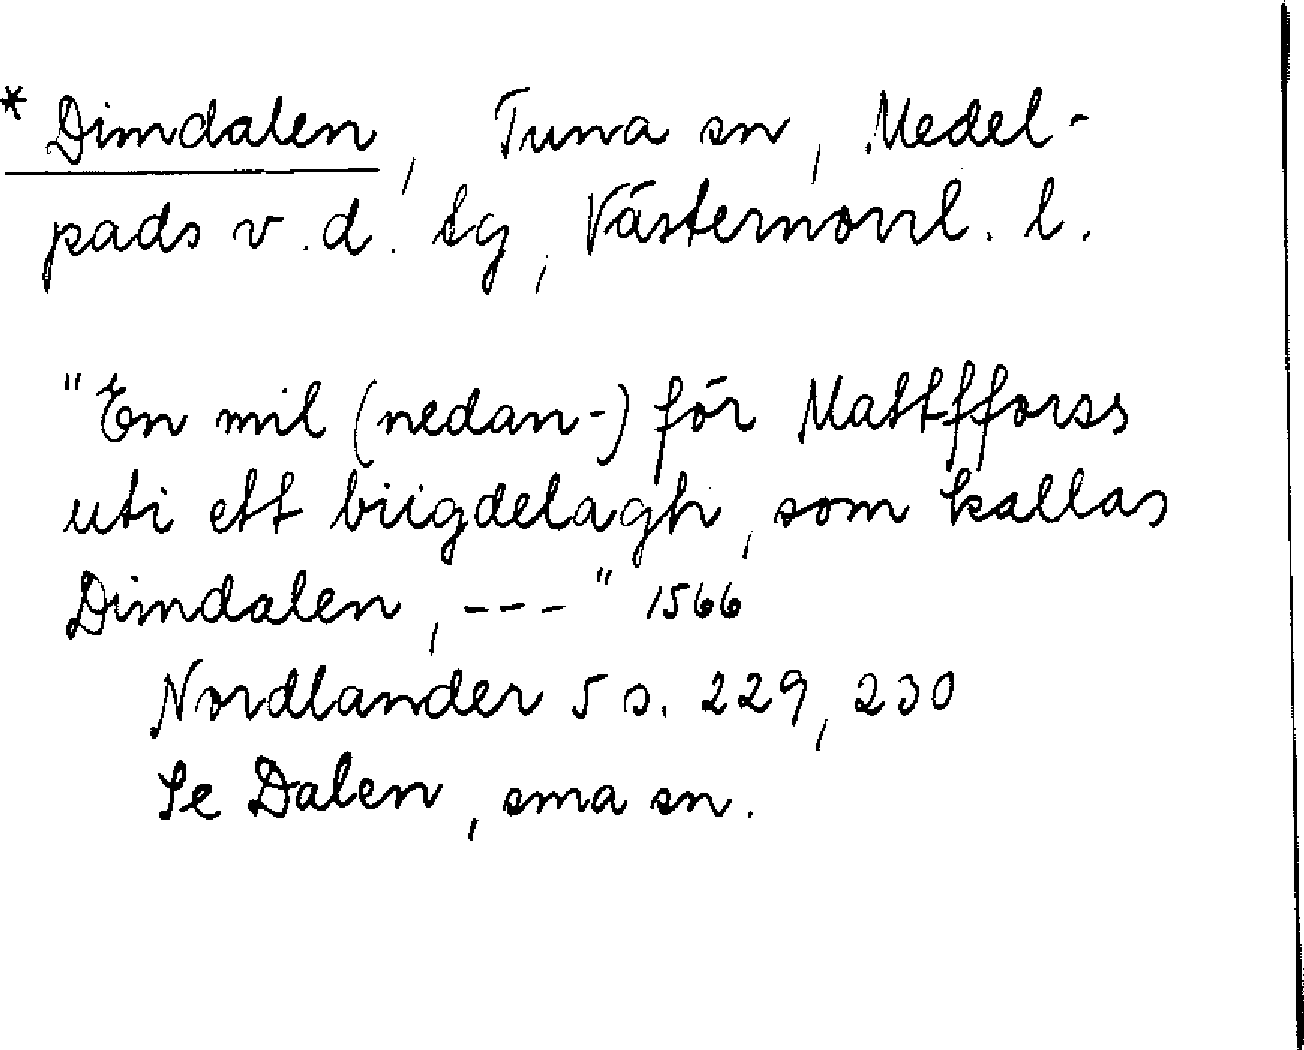 * Dimdalen, Tuna sn, Medel-
pads v.d. tg, Västernorrl. l.
"En mil (nedan-) för Mattfforss
uti ett biigdelagh, som kallas
Dimdalen, ---" 1566
Nordlander 5 s. 229, 230
Se Dalen, sma sn.